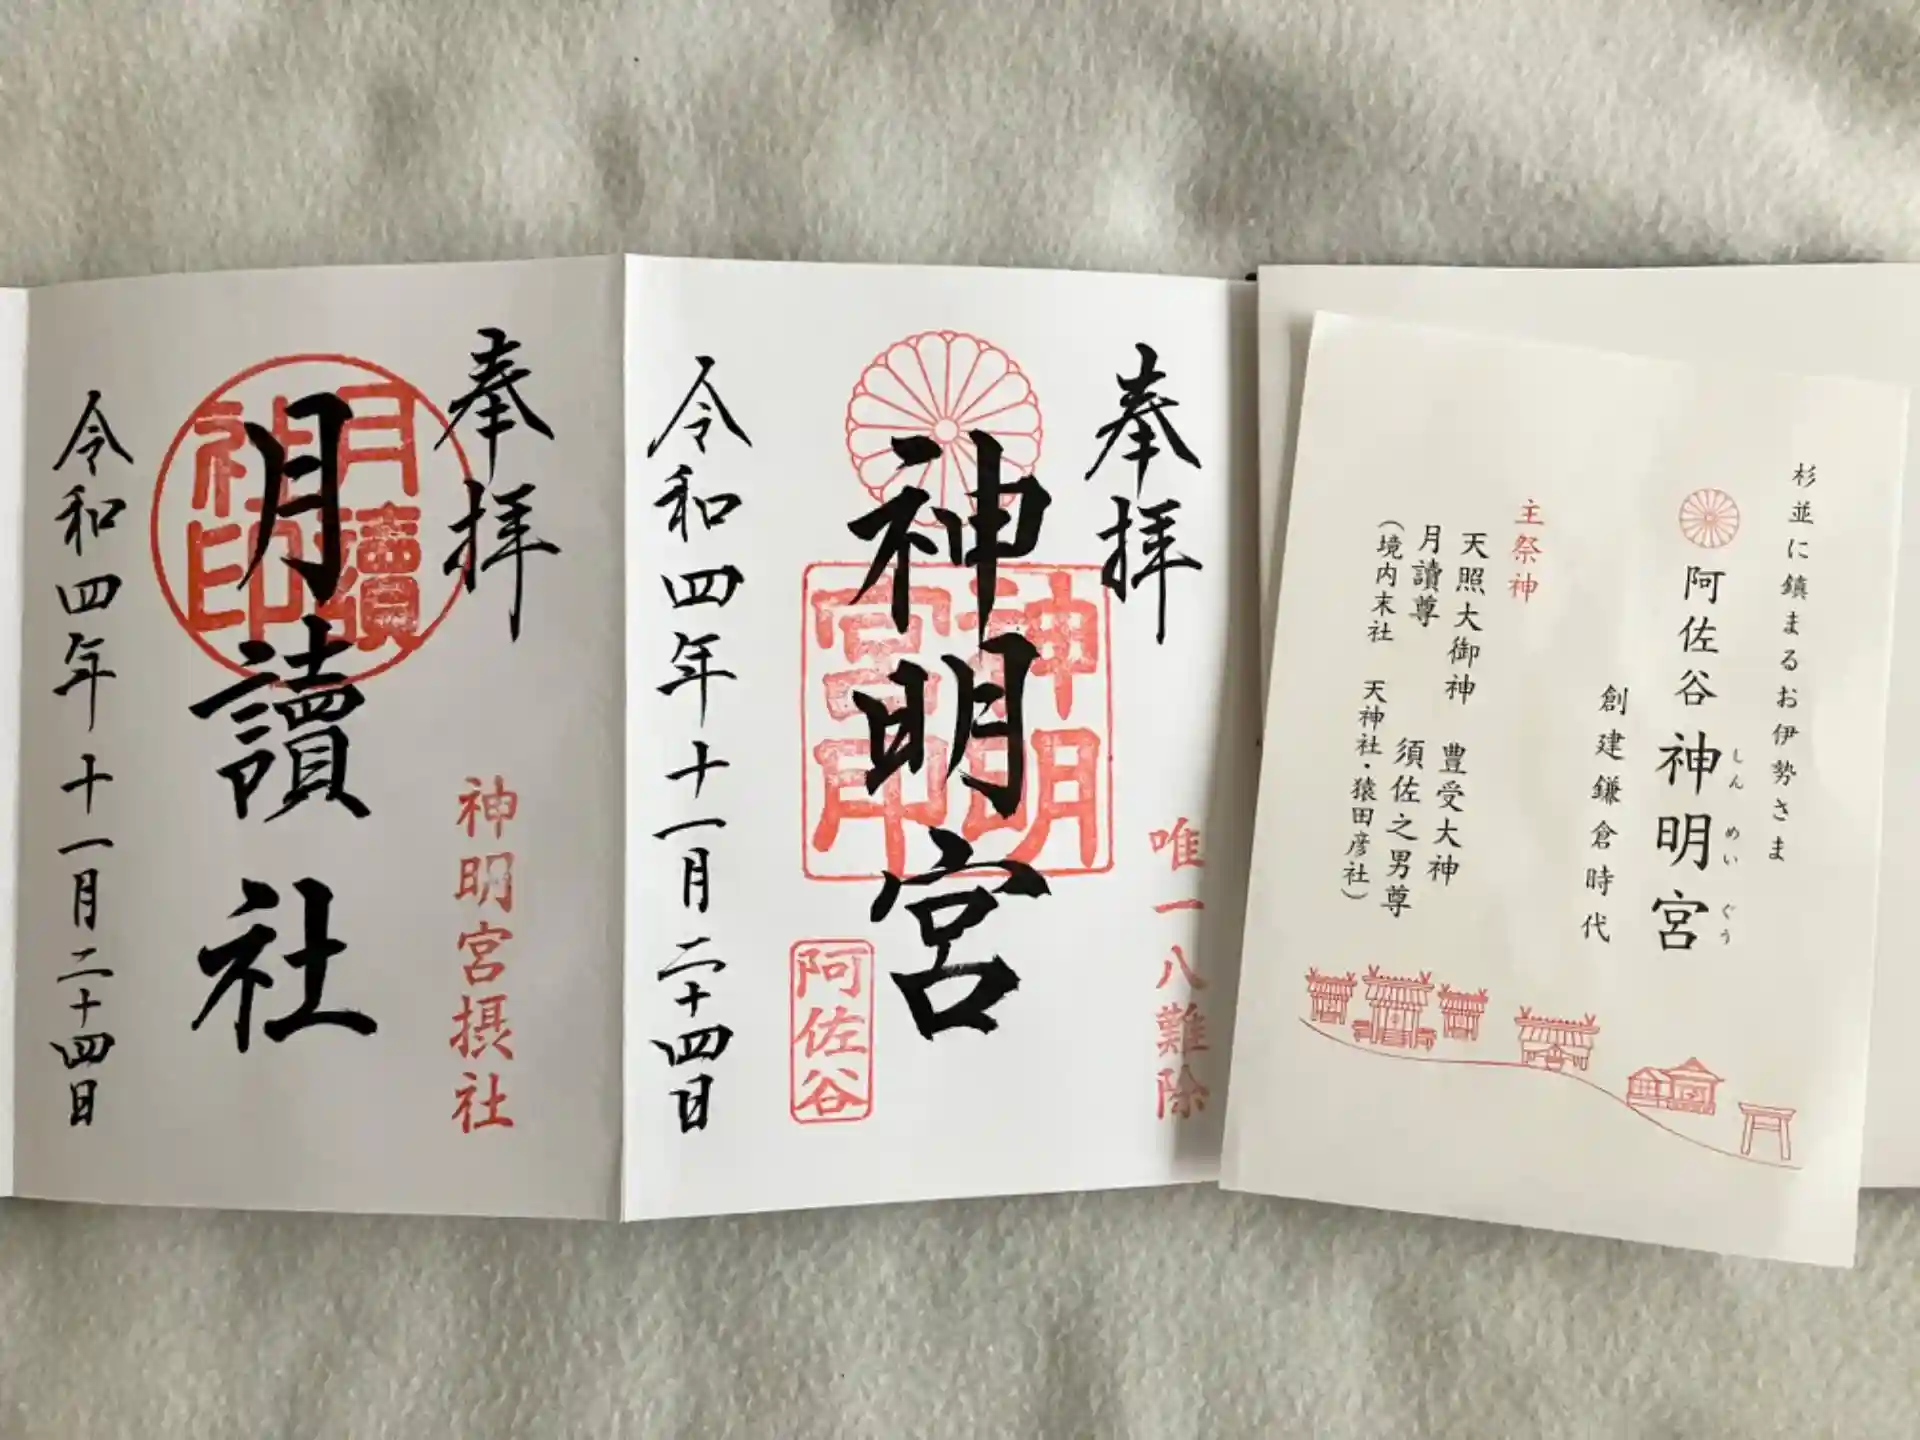 杉並に鎮まるお伊勢さま
阿佐谷神明宮
しんめいぐう
創建鎌倉時代
主祭神
天照大御神 豊受大神
月讀尊 須佐之男尊
(境内末社 天神社・猿田彦社)
奉拝
唯一八難除
神明宮
神明
宮印
阿佐谷
令和四年十一月二十四日
奉拝
神明宮摂社
月讀社
月讀
社印
令和四年十一月二十四日